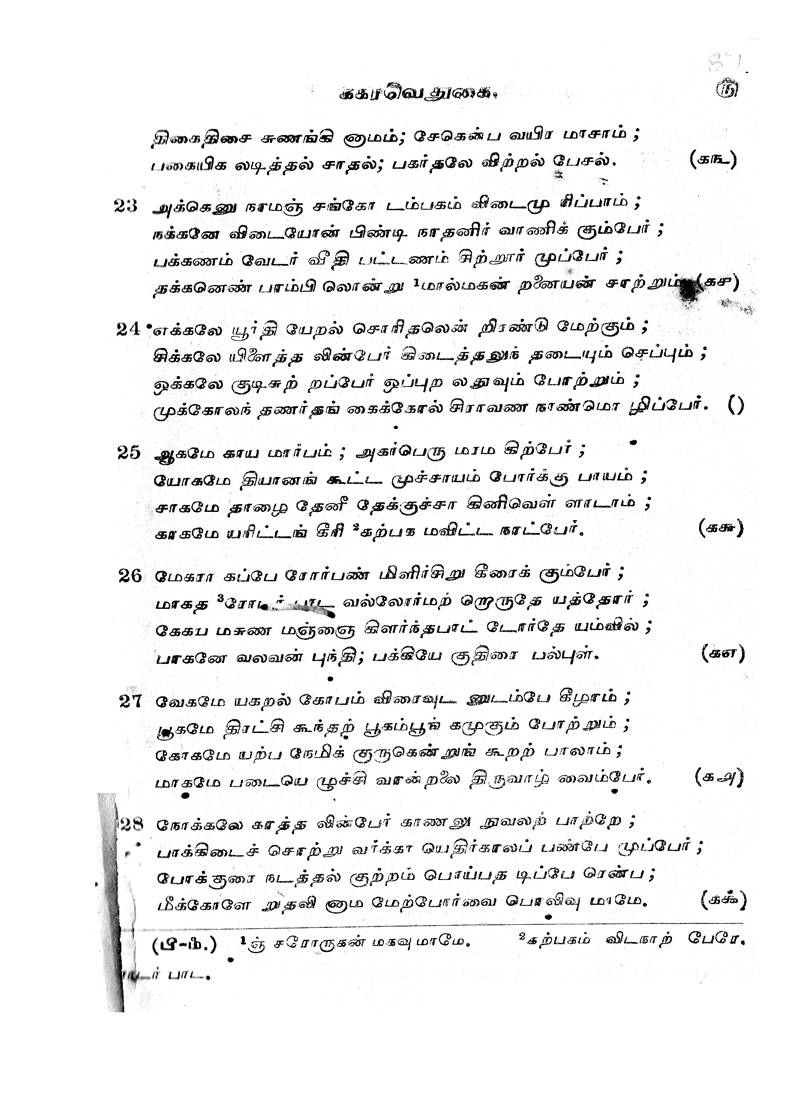 ககரவெதுகை.
திகைதிசை சுணங்கி னாமம்; சேகென்ப வயிர மாசாம் ;
பகையிக லடித்தல் சாதல்; பகர்தலே விற்றல் பேசல். (கங)
23 அக்கெனு நாமஞ் சங்கோ டம்பகம் விடைமு சிப்பாம் ;
நக்கனே விடையோன் பிண்டி நாதனிர் வாணிக் கும்பேர் ;
பக்கணம் வேடர் வீதி பட்டணம் சிற்றூர் முப்பேர் ;
தக்கனெண் பாம்பி லொன்று ¹மால்மகன் றனையன் சாற்றும் (கச)
24 எக்கலே யூர்தி யேறல் சொரிதலென் றிரண்டு மேற்கும் ;
சிக்கலே யிளைத்த லின்பேர் கிடைத்தலுந் தடையும் செப்பும் ;
ஒக்கலே குடிசுற் றப்பேர் ஒப்புற லதுவும் போற்றும் ;
முக்கோலந் தணர்தங் கைக்கோல் சிராவண நாண்மொ ழிப்பேர். ()
25 ஆகமே காய மார்பம் ; அகர்பெரு மரம கிற்பேர் ;
யோகமே தியானங் கூட்ட முச்சாயம் போர்க்கு பாயம் ;
சாகமே தாழை தேனீ தேக்குச்சா கினிவெள் ளாடாம் ;
காகமே யரிட்டங் கீரி ²கற்பக மவிட்ட நாட்பேர். (கசு)
26 மேகரா கப்பே ரோர்பண் மிளிர்சிறு கீரைக் கும்பேர் ;
மாகத ³ரோடர் பாட வல்லோர்மற் றொருதே யத்தோர் ;
கேகய மசுண மஞ்ஞை கிளர்ந்தபாட் டோர்தே யம்வில் ;
பாகனே வலவன் புந்தி; பக்கியே குதிரை பல்புள். (கஎ)
27 வேகமே யகறல் கோபம் விரைவுட னுடம்பே கீழாம் ;
பூகமே திரட்சி கூந்தற் பூகம்பூங் கமுகும் போற்றும் ;
கோகமே யற்ப நேமிக் குருகென்றுங் கூறற் பாலாம் ;
மாகமே படையெ ழுச்சி வான்றலை திருவாழ் வைம்பேர். (கஅ)
28 நோக்கலே காத்த லின்பேர் காணலு நுவலற் பாற்றே ;
பாக்கிடைச் சொற்று வர்க்கா யெதிர்காலப் பண்பே முப்பேர் ;
போக்குரை நடத்தல் குற்றம் பொய்பத டிப்பே ரென்ப ;
மீக்கோளே றுதலி னாம மேற்போர்வை பொலிவு மாமே. (கக)
(பி-ம்.) ¹ஞ் சரோருகன் மகவு மாமே. ²கற்பகம் விடநாற் பேரே.
டர் பாட.